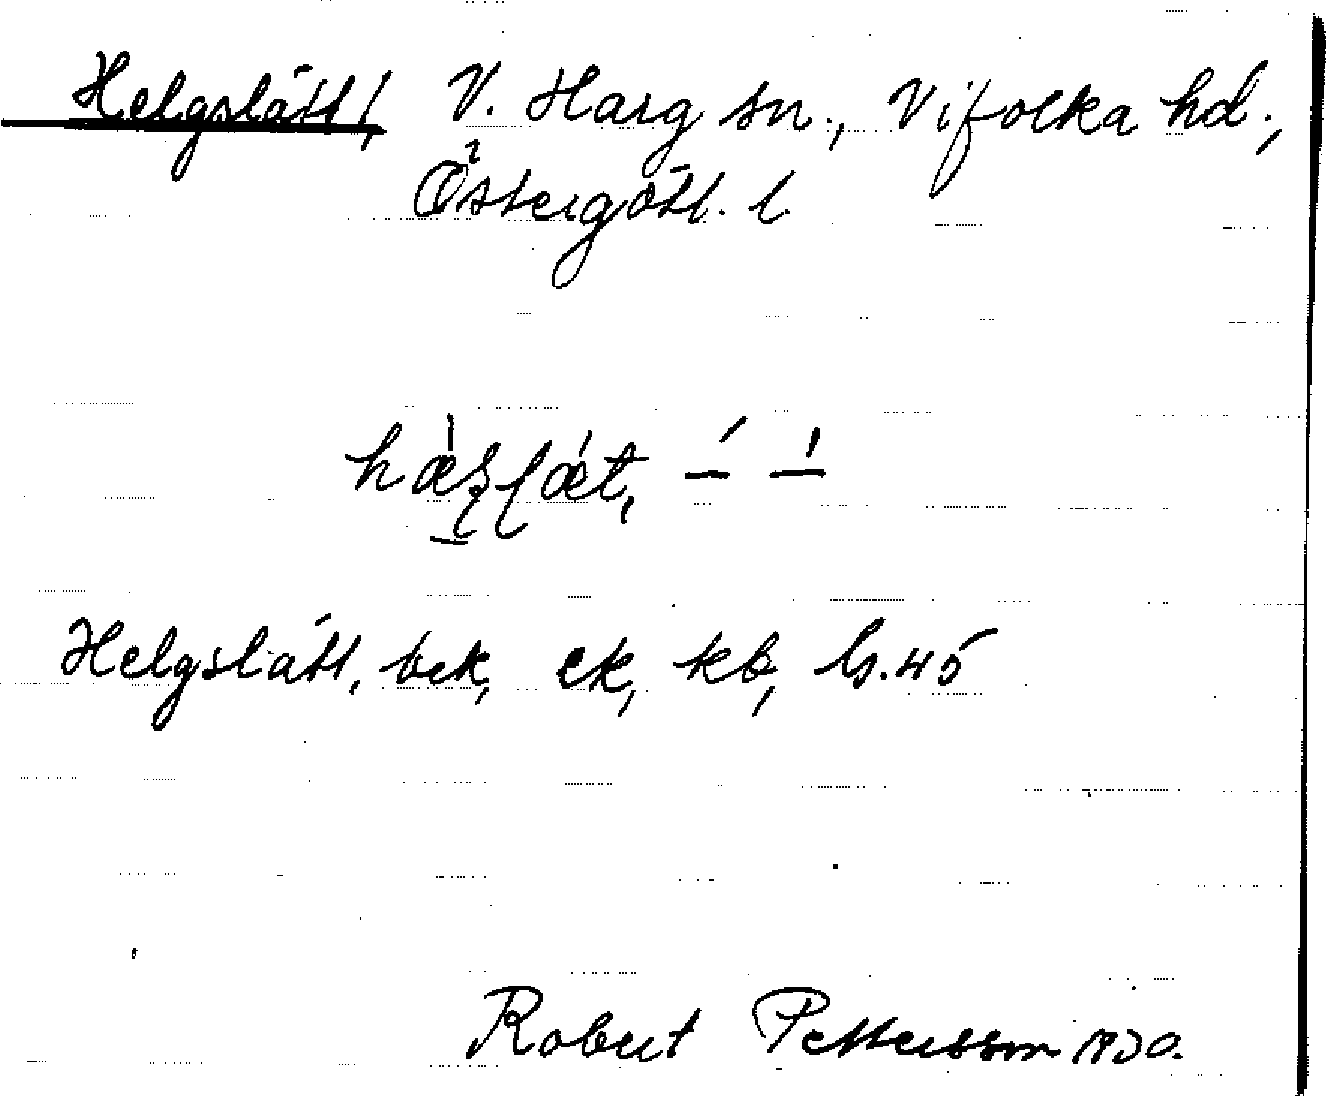 Helgslätt, V. Harg sn., Vifolka hd.,
Östergötl. l.
Helgslätt, bek, ek, kb,
Robert Pettersson